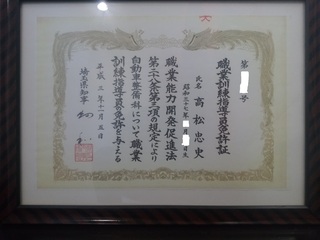 第 号
職業訓練指導員免許証
氏名 高松忠史
昭和三十七年 月 日生
職業能力開発促進法
第二八条第一項の規定により
自動車整備科について職業
訓練指導員免許を与える
平成三年十一月五日
埼玉県知事